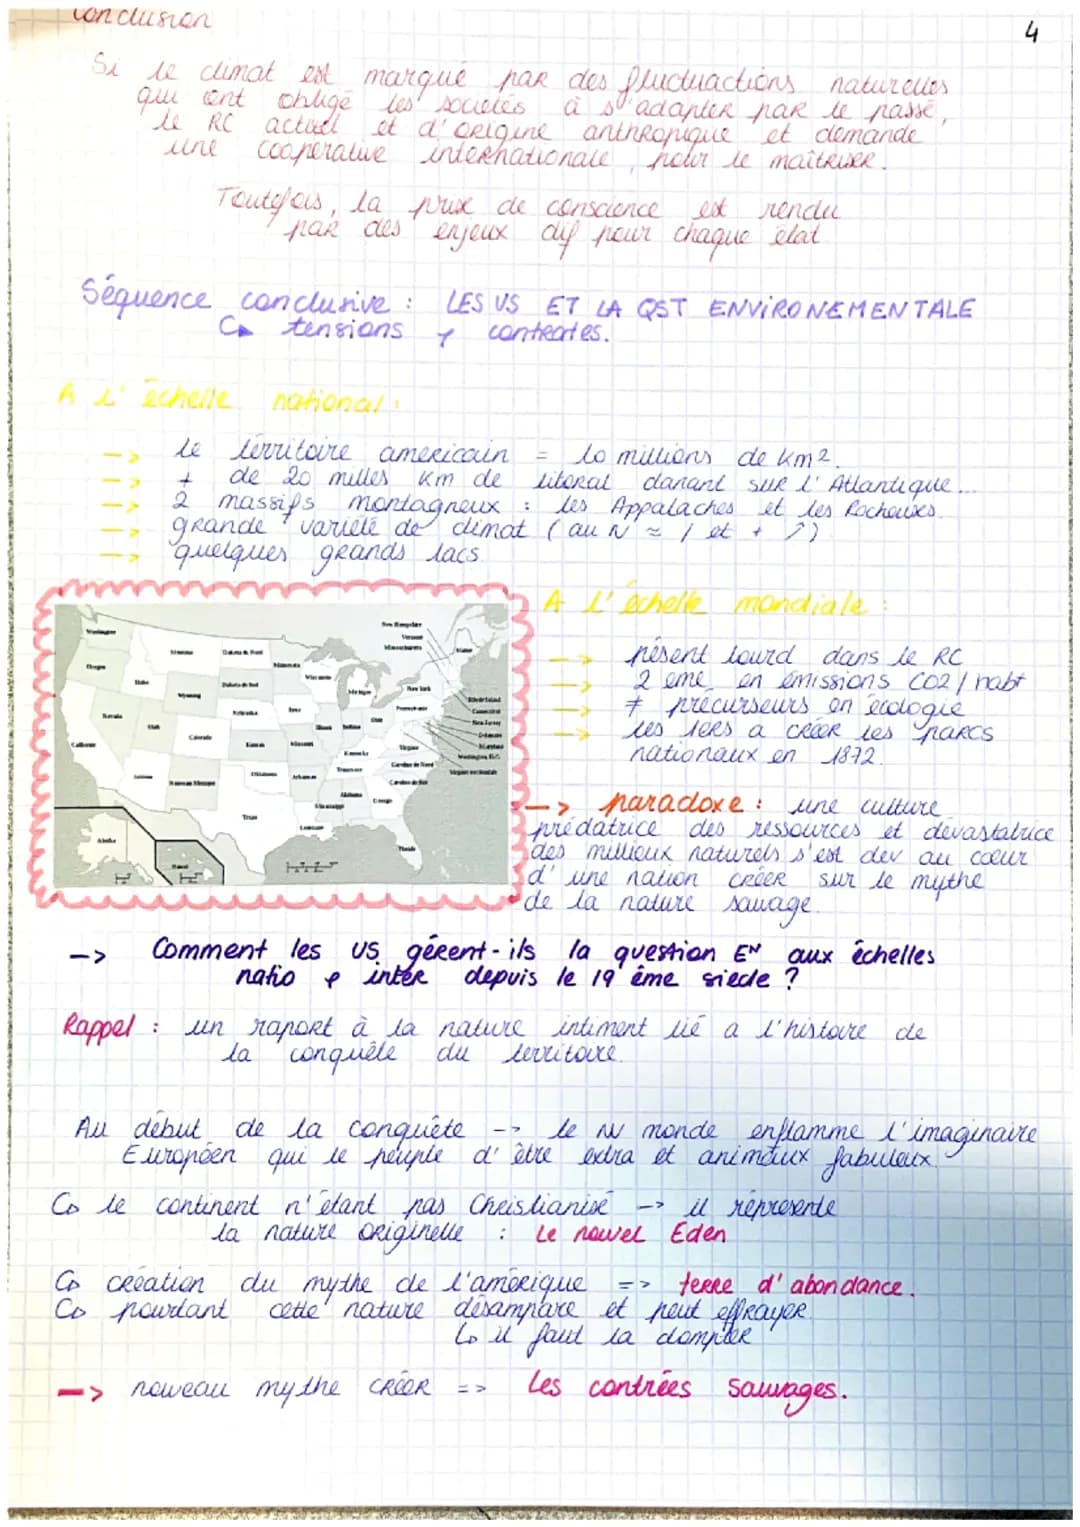 Conclusion
4
Si le climat est marqué par des fluctuactions naturelles
qui ont obligé les sociétés à s'adapter par le passé,
le RC actuel et d'origine anthropique et demande
une cooperative internationale, pour le maîtriser.
Toutefois, la prise de conscience est rendu
par des enjeux dif pour chaque état
Séquence conclusive : LES US ET LA QST ENVIRONEMENTALE
tensions contrastes.
A l'échelle national :
-> le térritoire americain = 10 millions de km2.
-> + de 20 milles km de litoral donant sur l'Atlantique...
-> 2 massifs montagneux : les Appalaches et les Rocheuses.
-> grande variété de climat (au N ≈ / et + ↗)
-> quelques grands lacs
Washington
Oregon
Californie
Nevada
Idaho
Montana
Wyoming
Utah
Colorado
Arizona
Nouveau Mexique
Dakota du Nord
Dakota du Sud
Nebraska
Kansas
Oklahoma
Texas
Minnesota
Iowa
Missouri
Arkansas
Louisiane
Wisconsin
Illinois
Michigan
Indiana
Ohio
Kentucky
Tennessee
Mississippi
Alabama
Georgie
Floride
Caroline du Sud
Caroline du Nord
Virginie
Virginie occidentale
Washington, D.C.
Maryland
Delaware
New Jersey
Connecticut
Rhode Island
Pennsylvanie
New York
Massachusetts
Vermont
New Hampshire
Maine
Alaska
Hawaï
A l'échelle mondiale :
-> pésent lourd dans le RC
-> 2 ème en émissions CO2/habt
-> ≠ précurseurs en écologie
-> les 1ers a créér les parcs
nationaux en 1872.
-> paradoxe : une culture
prédatrice des ressources et dévastatrice
des millieux naturels s'est dev au coeur
d'une nation créer sur le mythe
de la nature sauvage.
-> Comment les US gérent-ils la question EN aux échelles
natio & inter depuis le 19 ème siecle ?
Rappel : un raport à la nature intiment lié a l'histoire de
la conquête du térritoire.
Au début de la conquête -> le nv monde enflamme l'imaginaire
Européen qui le peuple d'être extra et animaux fabuleux.
le continent n'étant pas Christianisé -> il répresente
la nature originelle : Le nouvel Eden
création du mythe de l'amérique => terre d'abondance.
pourtant cette nature désampare et peut effrayer
il faut la dompter
-> nouveau mythe créér => Les contrées Sauvages.